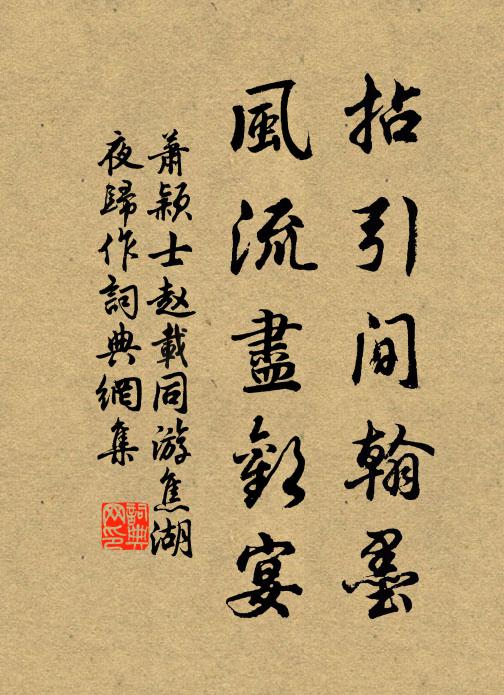 拈引間翰墨
風流盡歡宴
蕭穎士赵載同游焦湖
夜歸作詞典網集
詞典
网印